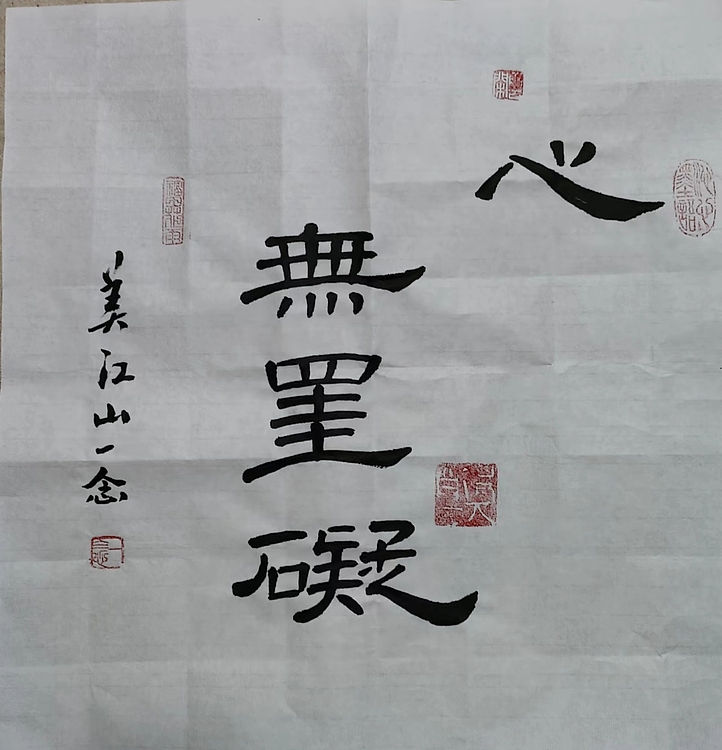 心
無罣礙
美江山一念